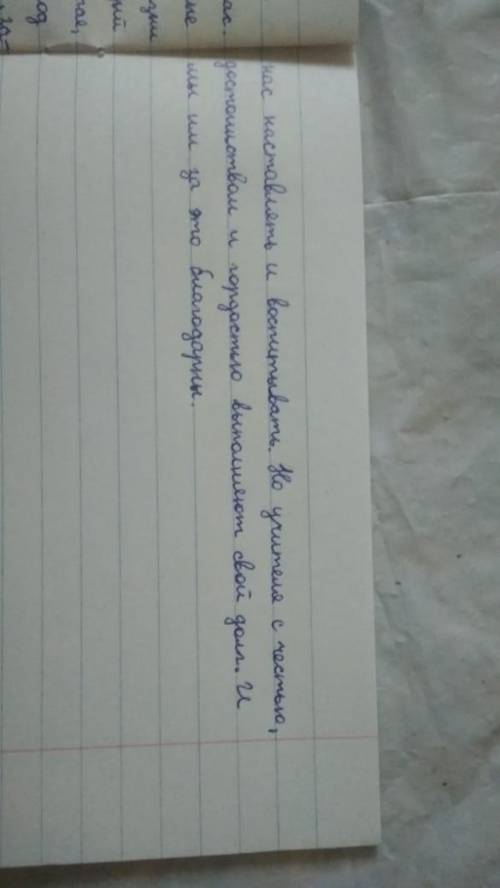 нас наставлять и воспитывать. Но учителя с честью,
достоинством и гордостью выполняют свой долг. И
мы им за это благодарны.